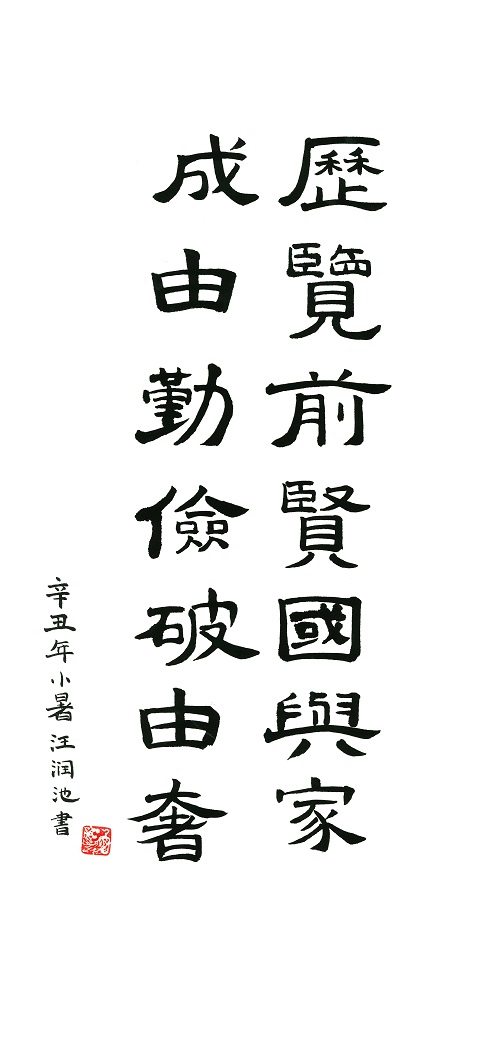 歷覽前賢國與家
成由勤儉破由奢
辛丑年小暑汪润池書